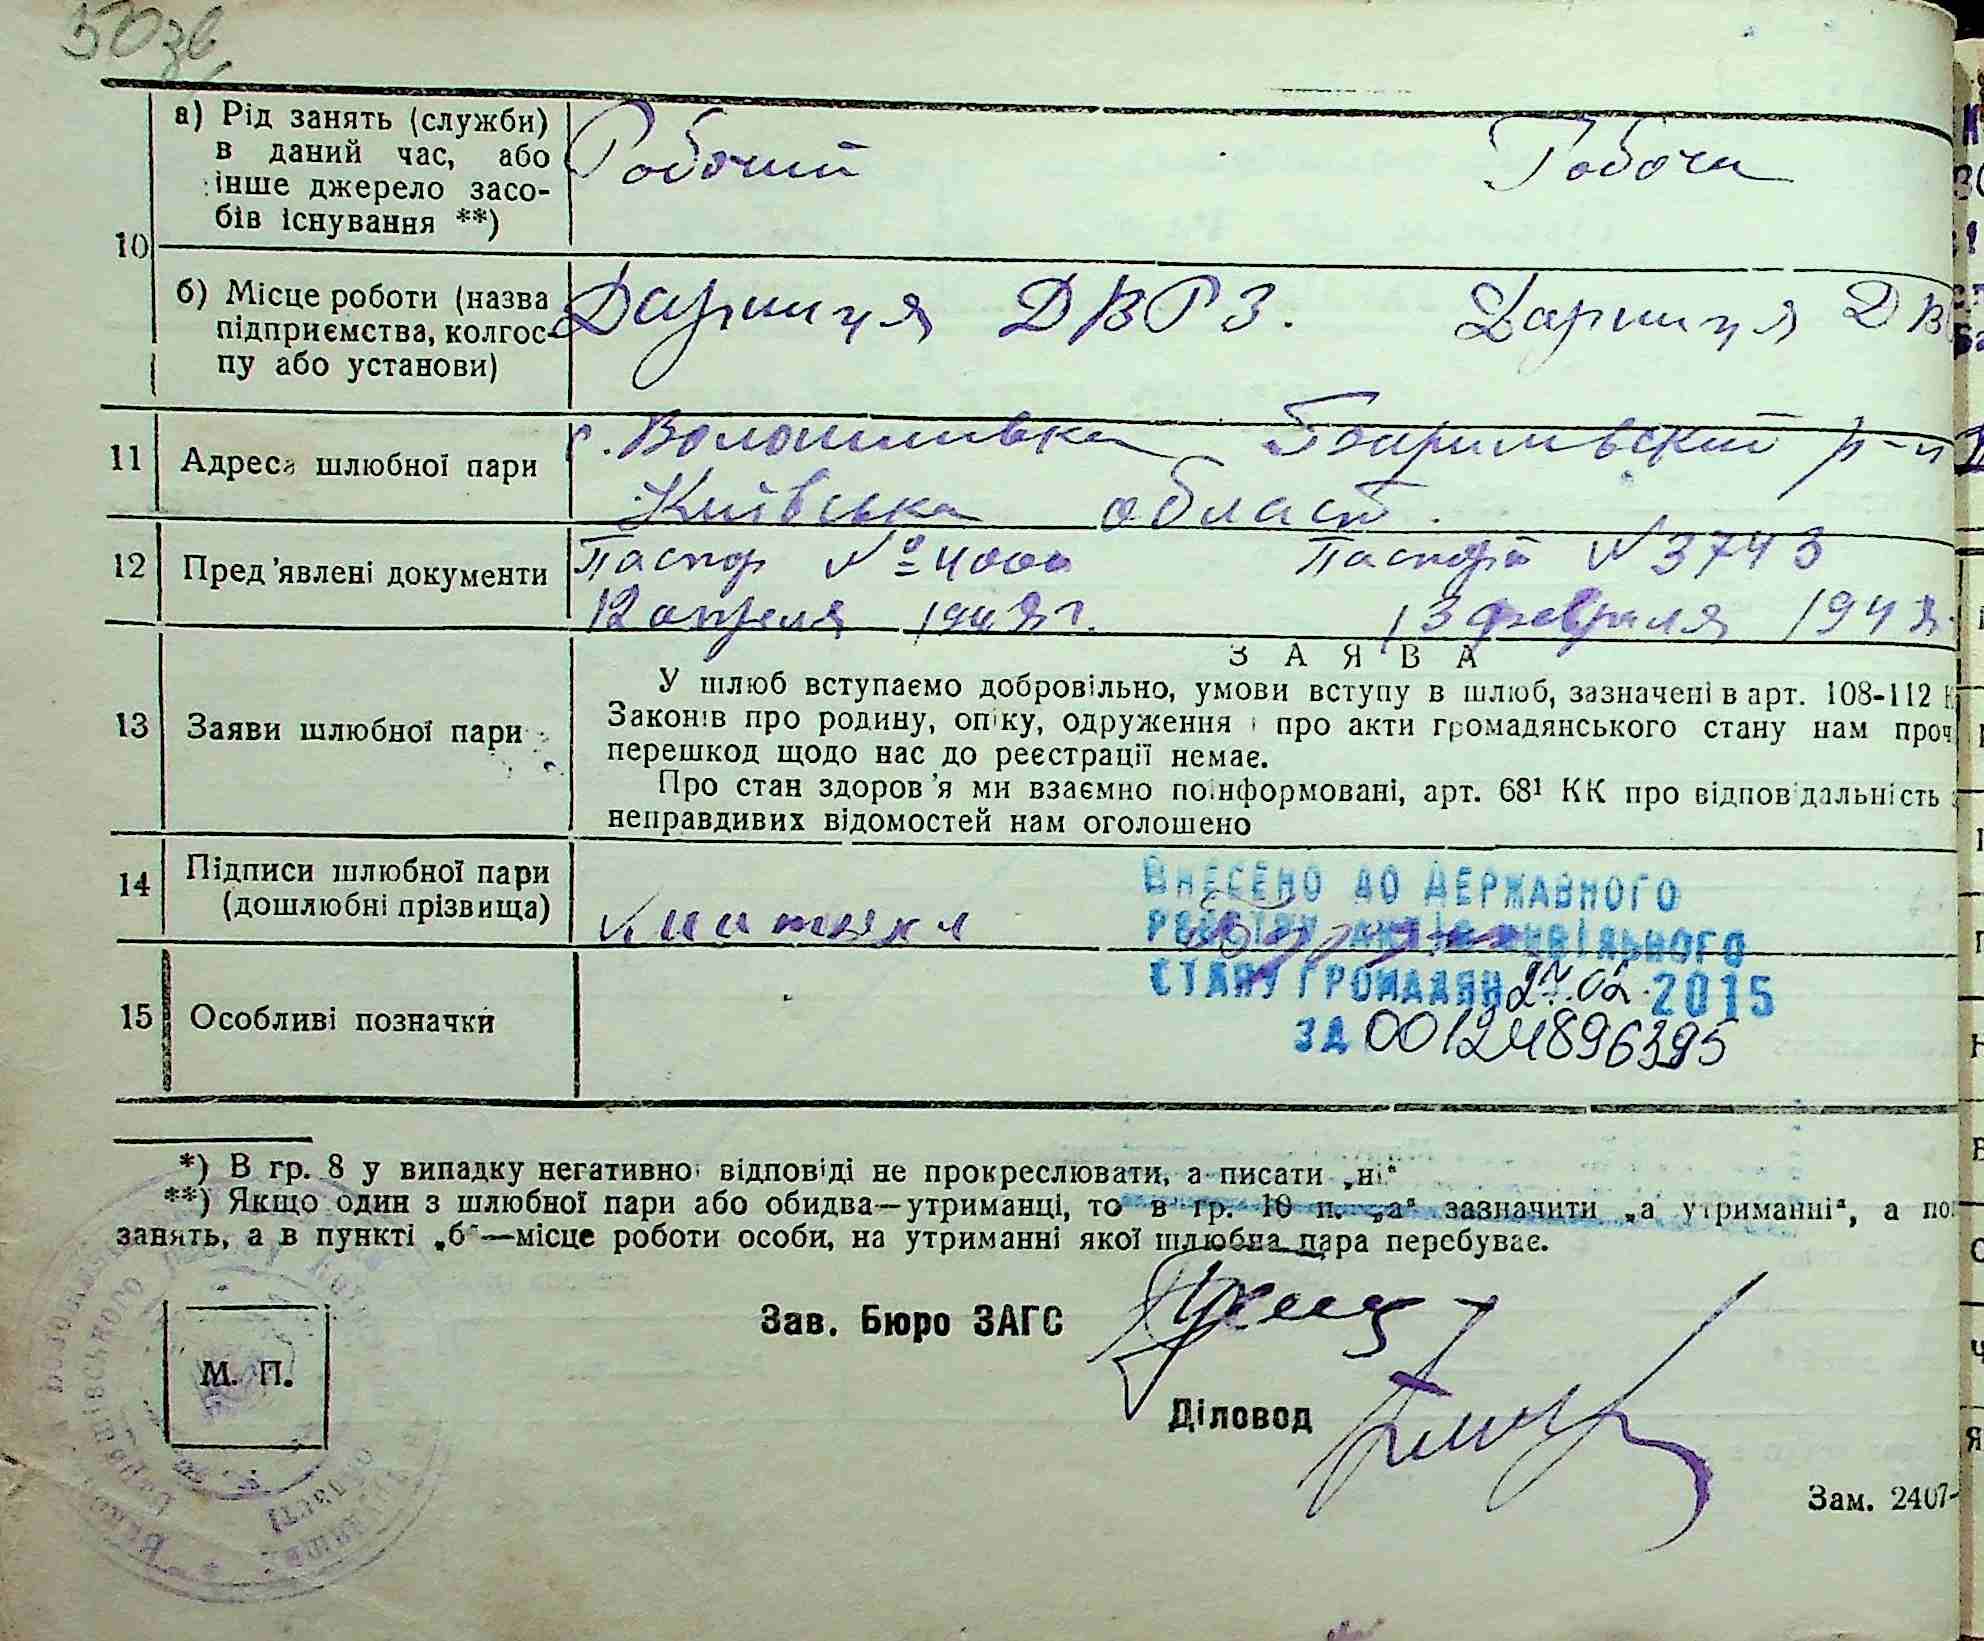 50зв
10
а) Рід занять (служби)
в даний час, або
інше джерело засо-
бів існування **)
Робочий Робоча
б) Місце роботи (назва
підприємства, колгос-
пу або установи)
Дарниця ДВРЗ. Дарниця ДВ
11 Адреса шлюбної пари
с. Волошинівка р-н
Київська област.
12 Пред'явлені документи
Паспор № 4000 Паспорт N 3743
12 апреля 13 февраля
З А Я В А
13 Заяви шлюбної пари
У шлюб вступаємо добровільно, умови вступу в шлюб, зазначені в арт. 108-112 К
Законів про родину, опіку, одруження і про акти громадянського стану нам проч
перешкод щодо нас до реєстрації немає.
Про стан здоров'я ми взаємно поінформовані, арт. 68¹ КК про відповідальність
неправдивих відомостей нам оголошено
14 Підписи шлюбної пари
(дошлюбні прізвища)
ВНЕСЕНО ДО ДЕРЖАВНОГО
РЕЄСТРУ АКТІВ ЦИВІЛЬНОГО
СТАНУ ГРОМАДЯН 27.02.2015
ЗА 00124896395
15 Особливі позначки
*) В гр. 8 у випадку негативної відповіді не прокреслювати, а писати „ні“
**) Якщо один з шлюбної пари або обидва—утриманці, то в гр. 10 п. „а“ зазначити „а утриманні“, а по
занять, а в пункті „б“—місце роботи особи, на утриманні якої шлюбна пара перебуває.
Зав. Бюро ЗАГС
М. П.
Діловод
Зам. 2407-